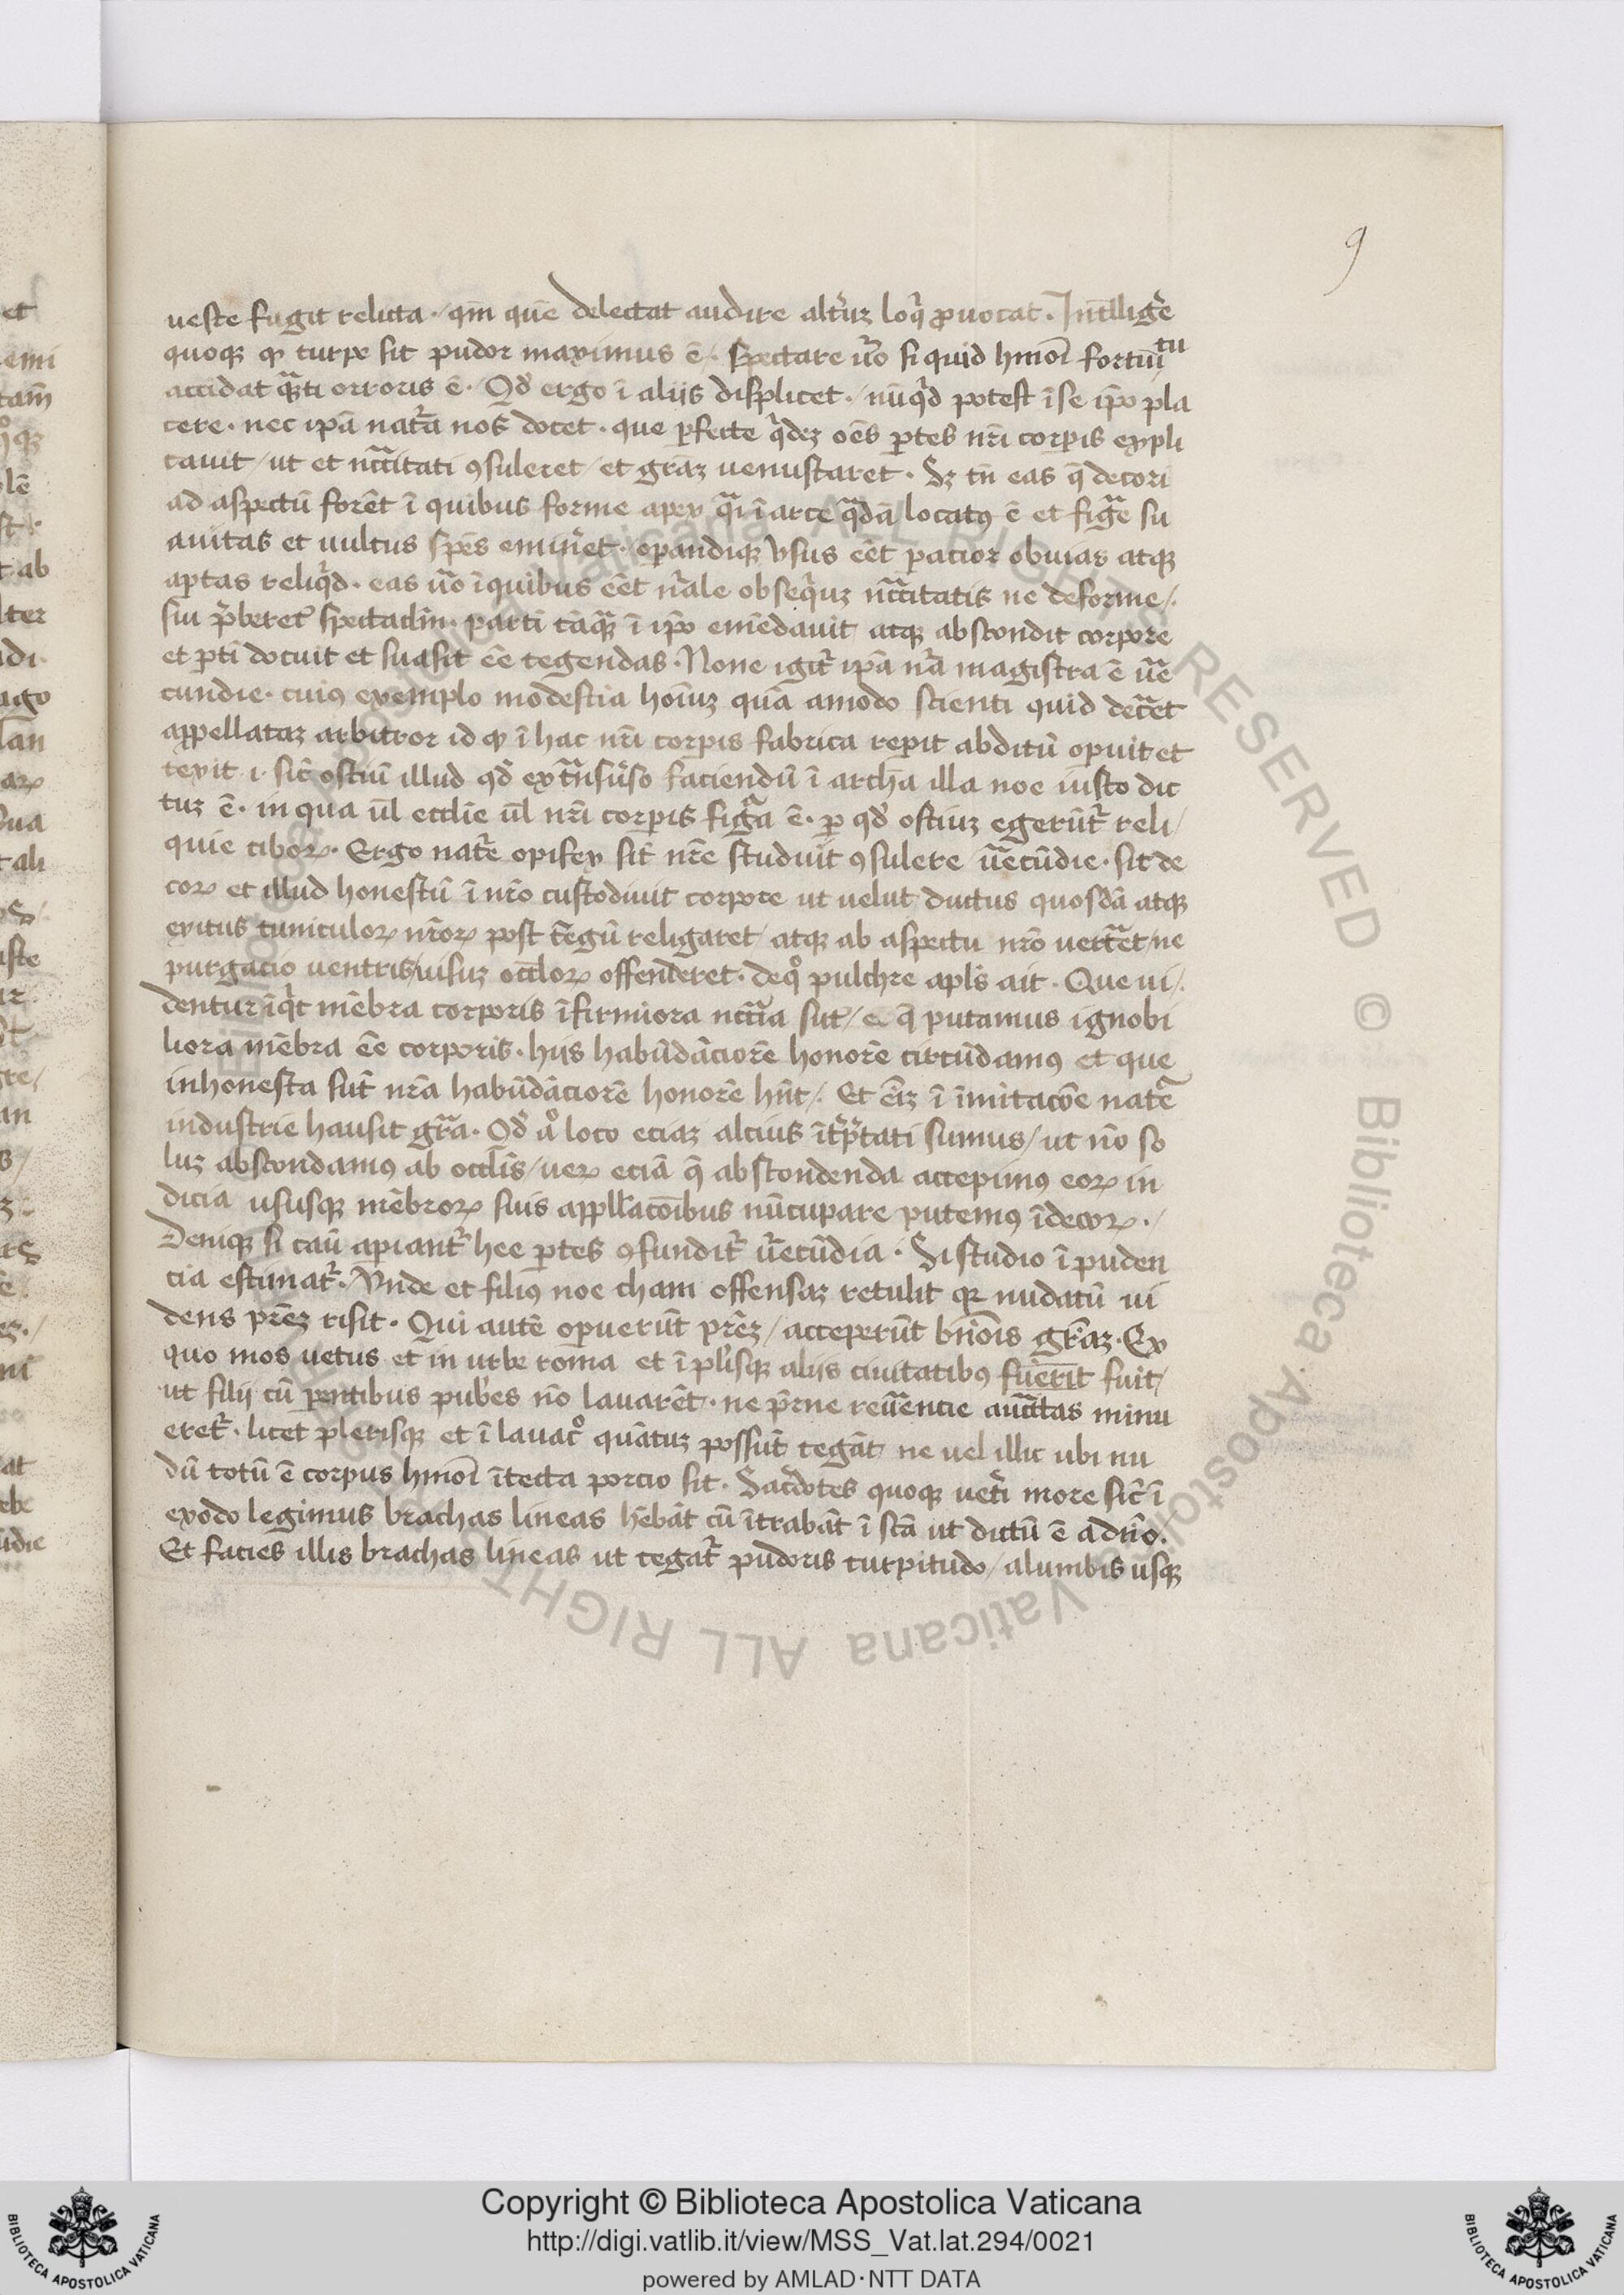 9
ueste fugit relicta · qm̄ quē delectat audire altūz loq̄ ꝓuocat · Intellige᷑
quoqꝫ ꝙ turpe sit pudor maximus ē · spectare ūo si quid hmōi fortuītu
accidat q̄ti orroris ē · Qd̓ ergo ī aliis displicet · nūq̇d potest ī se ip̄o pla
cere · nec ip̄a nat̄a nos docet · que ꝑfecte q̇dez oēs ꝑtes nr̄i corꝑis expli
cauit / ut et nccitati ꝯsuleret / et grāz uenustaret · Sꝫ tn̄ eas q̄ decori
ad aspectū forēt ī quibus forme apex q̄i ī arce q̄dā locatꝰ ē et fiḡe su
auitas et uultus spēs emineret · oꝑandiqꝫ vsus eēt pacior obuias atqꝫ
aptas reliq̇d · eas ūo ī quibus eēt nāle obseq̇uz nccitatis ne deforme /
sui p̄beret᷑ spectaclm̄ · partī tāq̄ ī ip̄o emēdauit atqꝫ abscondit corpore
et ꝑtī docuit et suasit eē tegendas · None igit᷑ ip̄a nā magistra ē ūe
cundie · cuiꝰ exemplo modestia hoīuz quā amodo scienti quid decēt
appellataz arbitror id ꝙ ī hac nr̄i corꝑis fabrica reꝑit abditū oꝑuit et
texit · sic̄ ostiū illud qd̓ ex tnsūso faciendū ī archa illa noe iusto dic
tuz ē · in qua ūl ecclīe ūl nr̄i corꝑis fiḡa ē · ꝑ qd̓ ostiuz egerūt᷑ reli /
quie ciboꝝ · Ergo nat̄e opifex sic̄ nr̄e studuit ꝯsulere ūecūdie · sic de
coꝝ et illud honestū ī nr̄o custodiuit corpore ut uelut ductus quosdā atqꝫ
exitus cuniculoꝝ nr̄oꝝ post tēgū religaret / atqꝫ ab aspectu nr̄o uert̄et / ne
purgacio uentris / uisuz oclōꝝ offenderet · deqͦ pulchre apl̄s ait · Que ui /
dentur īq̇t mēbra corporis īfirmiora nccīa sūt / & q̄ putamus ignobi
liora mēbra eē corporis · hiis habūdāciorē honorē circūdamꝰ et que
inhonesta sūt nr̄a habūdāciorē honorē hn̄t / · Et eīz ī imitacōe nat̄e
industrie hausit gr̄a · Qd̓ aͦ loco eciaz alcius īt̄p̄tati sumus / ut nō so
luz abscondamꝰ ab oclīs / ueꝝ eciā q̄ abscondenda accepimꝰ eoꝝ in
dicia ususqꝫ mēbroꝝ suis appllacōibus nūcupare putemꝰ īdecoꝝ · /
Deniqꝫ si caū aꝑiant᷑ hee ꝑtes ꝯfundit᷑ ūecūdia · Si studio īpuden
cia estimat᷑ · Vnde et filiꝰ noe cham offensaz retulit qꝛ nudatū ui
dens pr̄ez risit · Qui autē oꝑuerūt pr̄ez / acceperūt bn̄dōis grāz · Ex
quo mos uetus et in urbe roma et ī pl̓isqꝫ aliis ciuitatibꝰ fuerit fuit /
ut filii cū ꝑentibus pub̓es nō lauarēt · ne pr̄ne reūencie auctitas minu
eret᷑ · licet pleriqꝫ et ī lauacͦ quātuz possūt tegāt ne uel illic ubi nu
dū totū ē corpus hmōi ītecta porcio sit · Sacdotes quoqꝫ uet̓i more sic̄ ī
exodo legimus brachas lineas hēbāt cū ītrabāt ī scā ut dictū ē a dn̄o ·
Et facies illis brachas lineas ut tegat᷑ pudoris turpitudo / alumbis usqꝫ
Copyright © Biblioteca Apostolica Vaticana
http://digi.vatlib.it/view/MSS_Vat.lat.294/0021
powered by AMLAD·NTT DATA
BIBLIOTECA APOSTOLICA VATICANA
BIBLIOTECA APOSTOLICA VATICANA